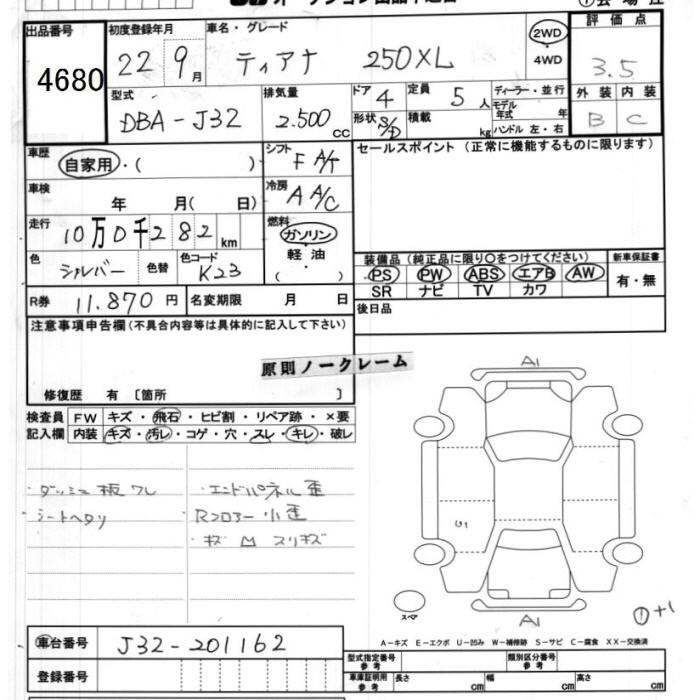 出品番号 初度登録年月 車名・グレード 評価点
4680 22 9月 ティアナ 250XL 2WD 4WD 3.5
型式 排気量 ドア 4 定員 5人 ディーラー・並行 外装 内装
DBA-J32 2.500cc 形状 S/D 積載 kg モデル年式 年 ハンドル 左・右 B C
車歴 自家用・( ) シフト F A/T セールスポイント (正常に機能するものに限ります)
車検 年 月( 日) 冷房 A A/C
走行 10万0千282km 燃料 ガソリン
軽油
( )
色 シルバー 色替 色コード K23
装備品 (純正品に限り○をつけてください) 新車保証書
PS PW ABS エアB AW 有・無
SR ナビ TV カワ
R券 11.870円 名変期限 月 日 後日品
注意事項申告欄(不具合内容等は具体的に記入して下さい)
原則ノークレーム
修復歴 有 〔箇所 〕
検査員 FW キズ・飛石・ヒビ割・リペア跡・×要
記入欄 内装 キズ・汚レ・コゲ・穴・スレ・キレ・破レ
・ダッシュ板ワレ ・エンドパネル歪
・シートヘタリ Rフロアー小歪
・キズ 凹 スリキズ
A1
A1
スペア
+1
A-キズ E-エクボ U-凹み W-補修跡 S-サビ C-腐食 XX-交換済
車台番号 J32-201162
登録番号
型式指定番号 参考 類別区分番号 参考
車庫証明用 参考 長さ cm 幅 cm 高さ cm